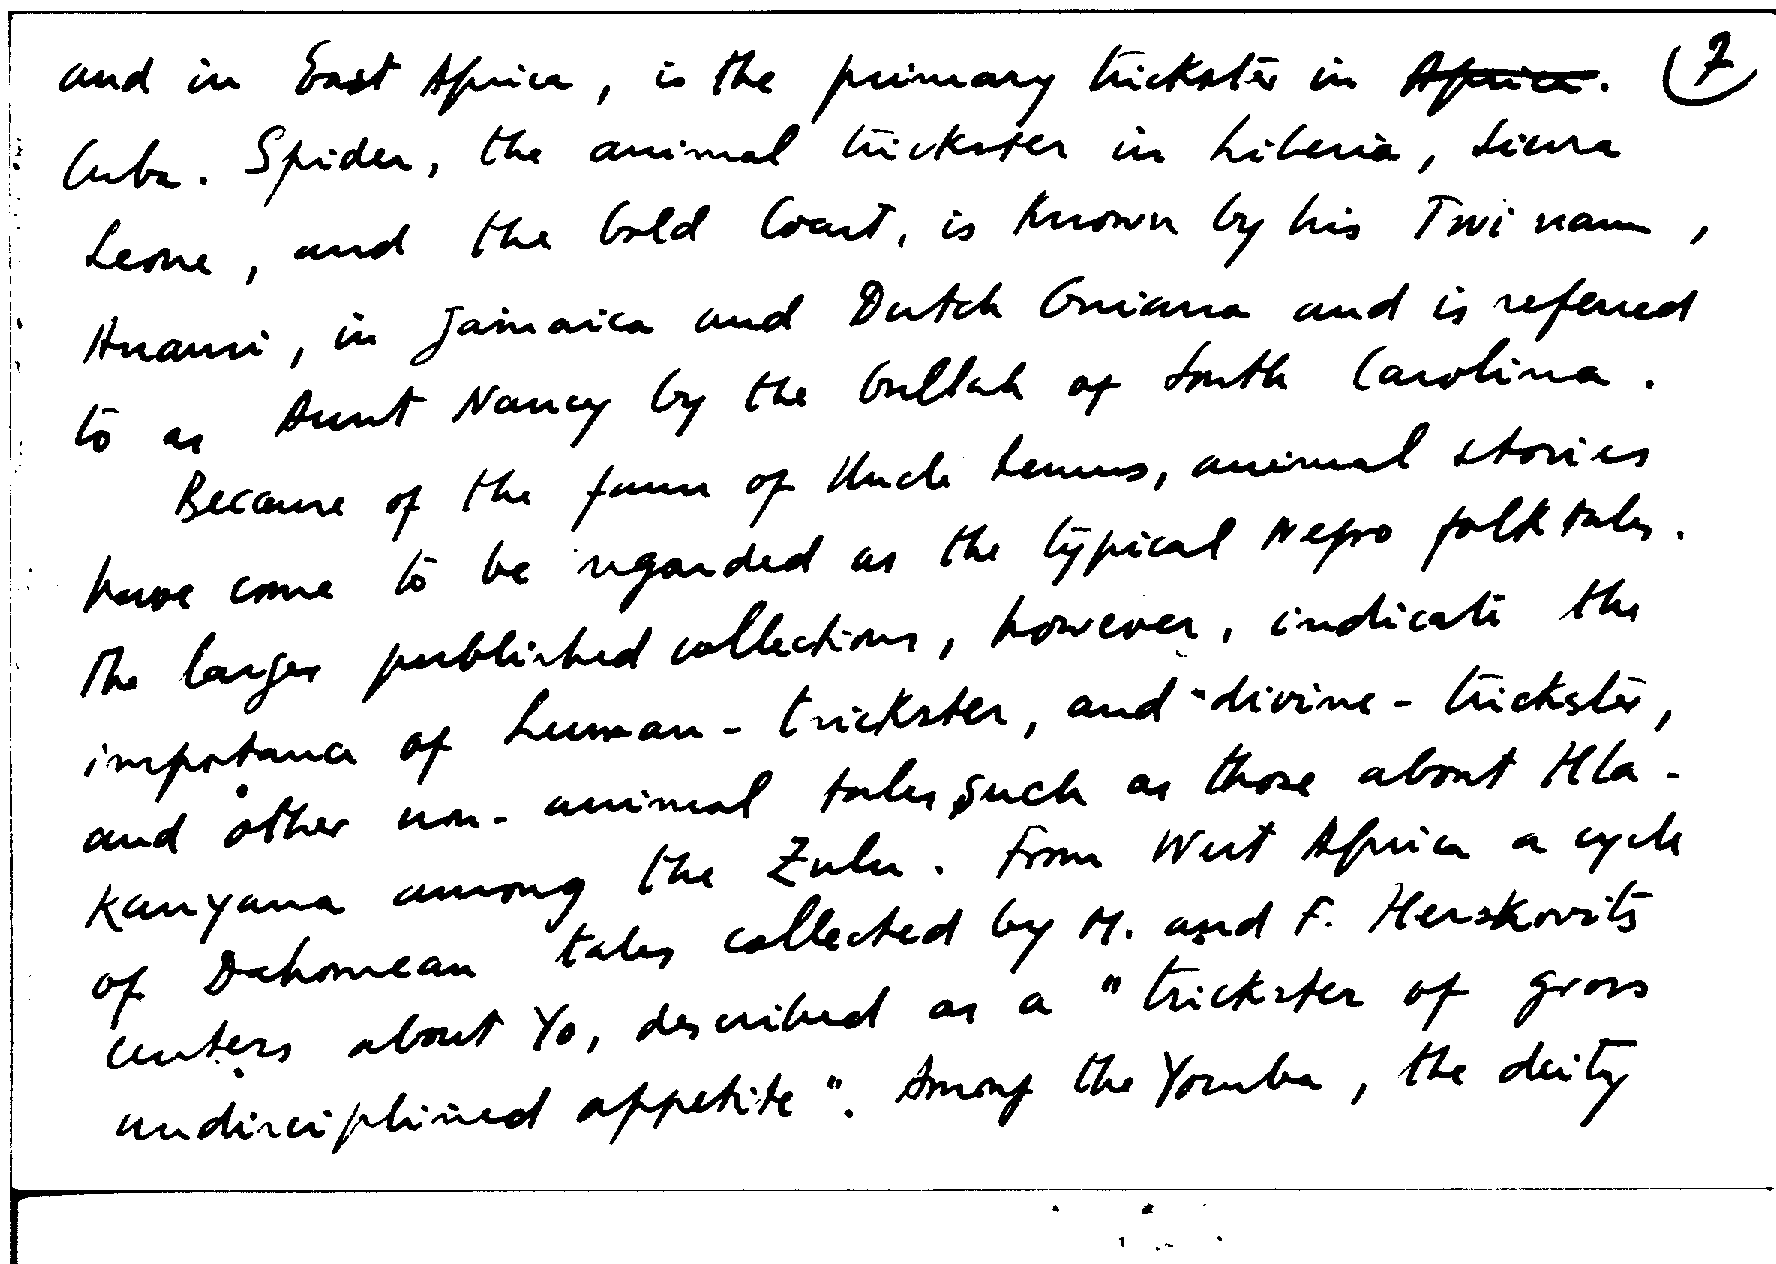 and in East Africa, is the primary trickster in ~~Africa~~. 7
Cuba. Spider, the animal trickster in Liberia, Sierra
Leone, and the Gold Coast, is known by his Twi name,
Anansi, in Jamaica and Dutch Guiana and is referred
to as Aunt Nancy by the Gullah of South Carolina.
Because of the fame of Uncle Remus, animal stories
have come to be regarded as the typical Negro folktales.
The larger published collections, however, indicate the
importance of human-trickster, and divine-trickster,
and other non-animal tales such as those about Hla-
kanyana among the Zulu. From West Africa a cycle
of Dahomean tales collected by M. and F. Herskovits
centers about Yo, described as a "trickster of gross
undisciplined appetite". Among the Yoruba, the deity